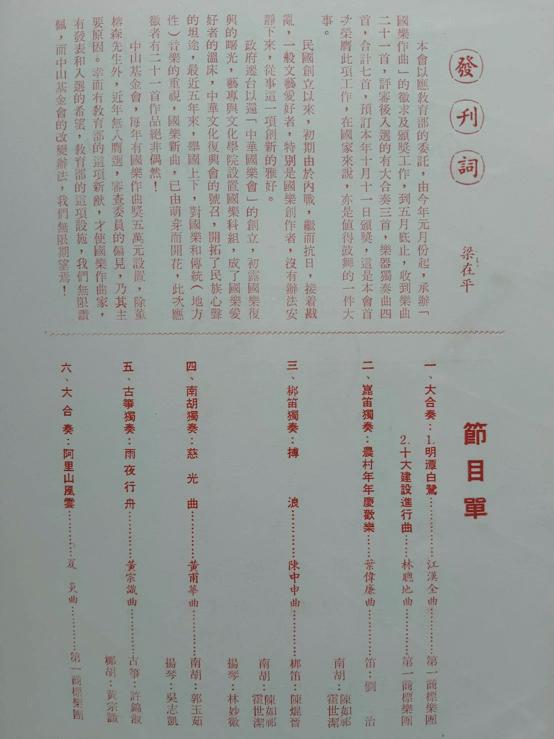 發刊詞
梁在平
本會以應教育部的委託，由今年元月份起，承辦「
國樂作曲」的徵求及頒獎工作，到五月底止，收到樂曲
二十一首，評審後入選的有大合奏三首，樂器獨奏曲四
首，合計七首，預訂本年十月十一日頒獎，這是本會首
次榮膺此項工作，在國家來說，亦是值得鼓舞的一件大
事。
民國創立以來，初期由於內戰，繼而抗日，接着戡
亂，一般文藝愛好者，特別是國樂創作者，沒有辦法安
靜下來，從事這一項創新的雅好。
政府遷台以還「中華國樂會」的創立，初露國樂復
興的曙光，藝專與文化學院設置國樂科組，成了國樂愛
好者的溫床，中華文化復興會的號召，開拓了民族心聲
的坦途，最近五年來，舉國上下，對國樂和傳統（地方
性）音樂的重視，國樂新曲，已由萌芽而開花，此次應
徵者有二十一首作品絕非偶然！
中山基金會，每年有國樂作曲獎五萬元設置，除董
榕森先生外，近年無人膺選，審查委員的偏見，乃其主
要原因。幸而有教育部的這項新猷，才使國樂作曲家，
有發表和入選的希望，教育部的這項設施，我們無限讚
佩，而中山基金會的改變辦法，我們無限期望焉！
節目單
一、大合奏：1.明潭白鷺………江漢全曲………第一商標樂團
2.十大建設進行曲……林聰地曲………第一商標樂團
二、崑笛獨奏：農村年年慶歡樂……葉偉廉曲………笛：劉 治
南胡：陳如祁
霍世潔
三、梆笛獨奏：搏 浪………陳中申曲………梆笛：陳焜晉
南胡：陳如祁
霍世潔
揚琴：林妙徽
四、南胡獨奏：慈光曲………黃甫華曲………南胡：郭玉茹
揚琴：吳志凱
五、古箏獨奏：雨夜行舟………黃宗識曲………古箏：許錦淑
椰胡：黃宗識
六、大合奏：阿里山風雲………夏 炎曲………第一商標樂團